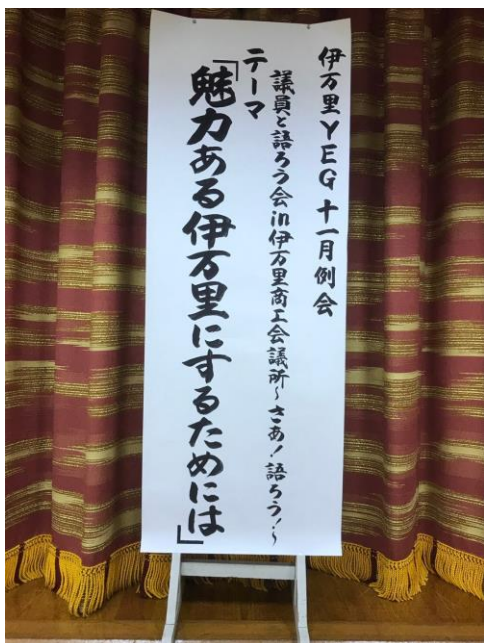 伊万里YEG十一月例会
議員と語ろう会in伊万里商工会議所～さあ！語ろう！～
テーマ
「魅力ある伊万里にするためには」